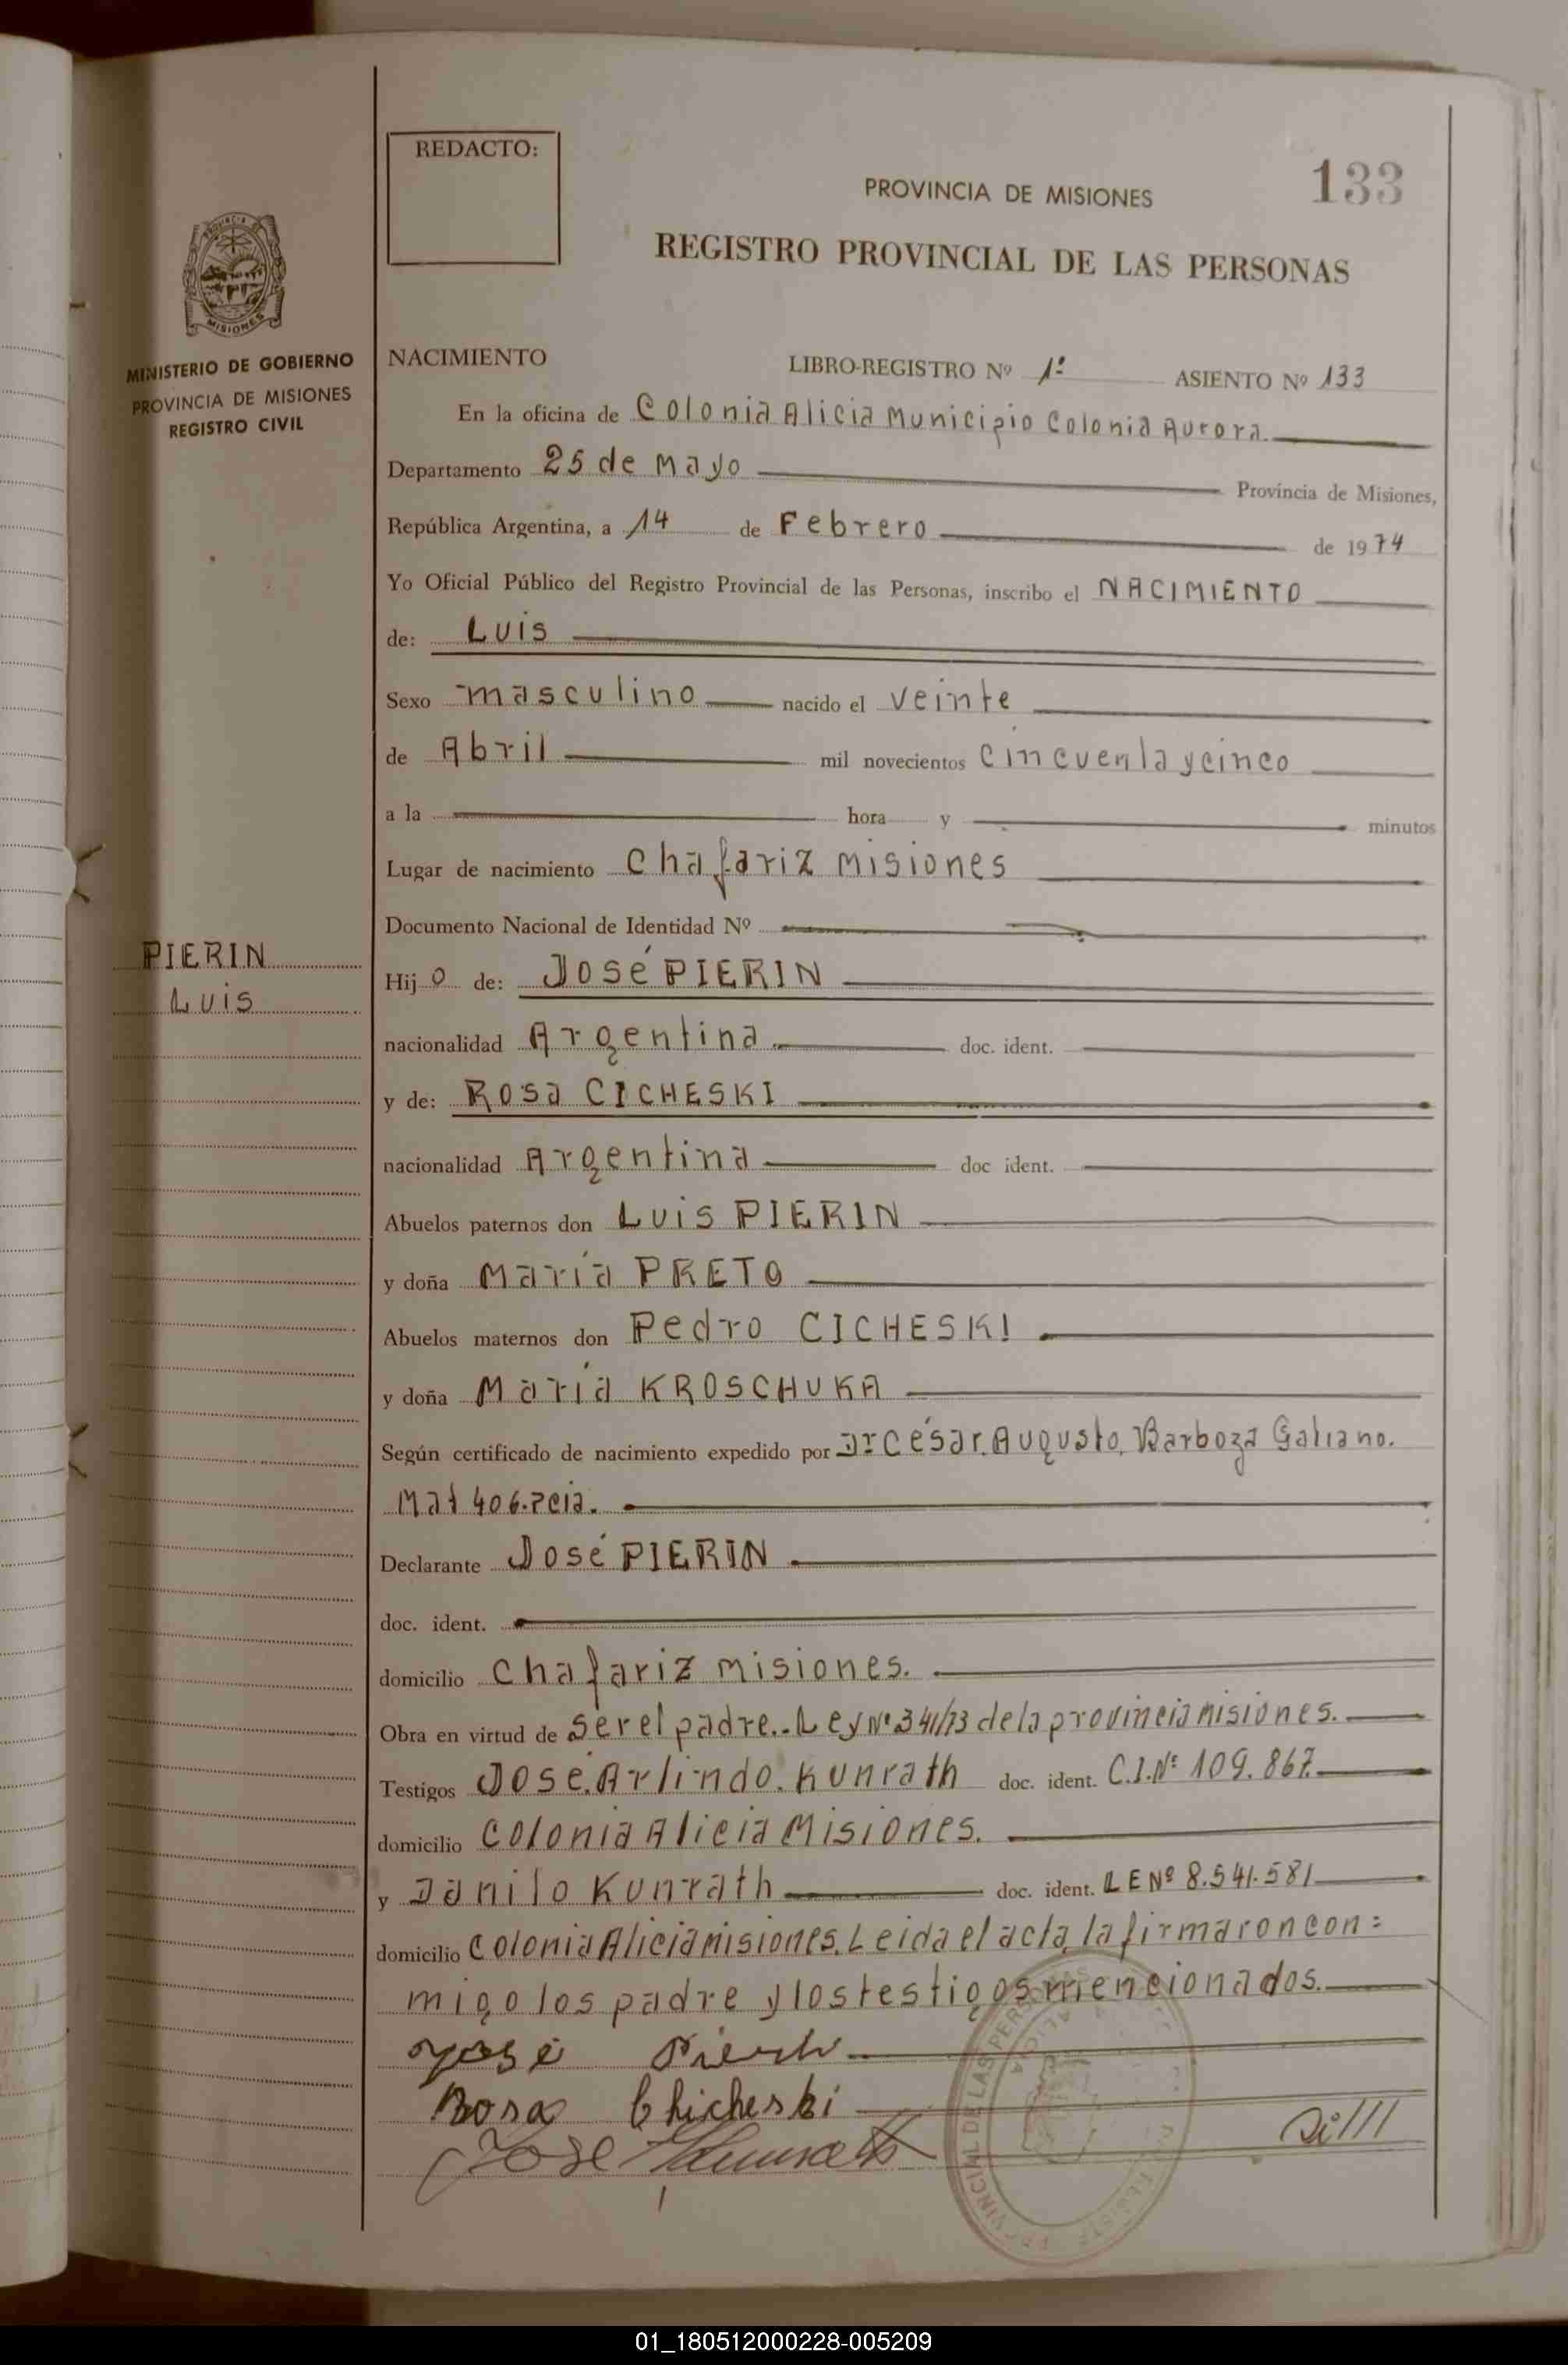 REDACTO:
PROVINCIA DE MISIONES
133
REGISTRO PROVINCIAL DE LAS PERSONAS
PROVINCIA
MISIONES
MINISTERIO DE GOBIERNO
PROVINCIA DE MISIONES
REGISTRO CIVIL
NACIMIENTO LIBRO-REGISTRO Nº 1º ASIENTO Nº 133
En la oficina de Colonia Alicia Municipio Colonia Aurora.
Departamento 25 de Mayo Provincia de Misiones,
República Argentina, a 14 de Febrero de 1974
Yo Oficial Público del Registro Provincial de las Personas, inscribo el NACIMIENTO
de: Luis
Sexo masculino nacido el veinte
de Abril mil novecientos cincuenta y cinco
a la hora y minutos
Lugar de nacimiento Chafariz Misiones
Documento Nacional de Identidad Nº
PIERIN
Luis
Hijo de: José PIERIN
nacionalidad Argentina. doc. ident.
y de: Rosa CICHESKI
nacionalidad Argentina doc ident.
Abuelos paternos don Luis PIERIN
y doña María PRETO
Abuelos maternos don Pedro CICHESKI
y doña María KROSCHUKA
Según certificado de nacimiento expedido por Dr César. Augusto. Barboza Galiano.
Mat 406.Pcia.
Declarante José PIERIN
doc. ident.
domicilio Chafariz Misiones.
Obra en virtud de ser el padre.. Ley Nº 341/73 de la provincia Misiones.
Testigos José. Arlindo. Kunrath doc. ident. C.I.Nº 109.867.
domicilio Colonia Alicia Misiones.
y Danilo Kunrath doc. ident. L E Nº 8.541.581
domicilio Colonia Alicia Misiones. Leida el acta la firmaron con=
migo los padre y los testigos mencionados.
José Pierin
Rosa Chicheski
José Kunrath
01_180512000228-005209